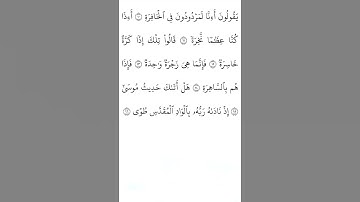 يَقُولُونَ أَءِنَّا لَمَرْدُودُونَ فِى ٱلْحَافِرَةِ ۝ أَءِذَا
كُنَّا عِظَـٰمًا نَّخِرَةً ۝ قَالُوا۟ تِلْكَ إِذًا كَرَّةٌ
خَاسِرَةٌ ۝ فَإِنَّمَا هِىَ زَجْرَةٌ وَٰحِدَةٌ ۝ فَإِذَا
هُم بِٱلسَّاهِرَةِ ۝ هَلْ أَتَىٰكَ حَدِيثُ مُوسَىٰٓ
۝ إِذْ نَادَىٰهُ رَبُّهُۥ بِٱلْوَادِ ٱلْمُقَدَّسِ طُوًى ۝